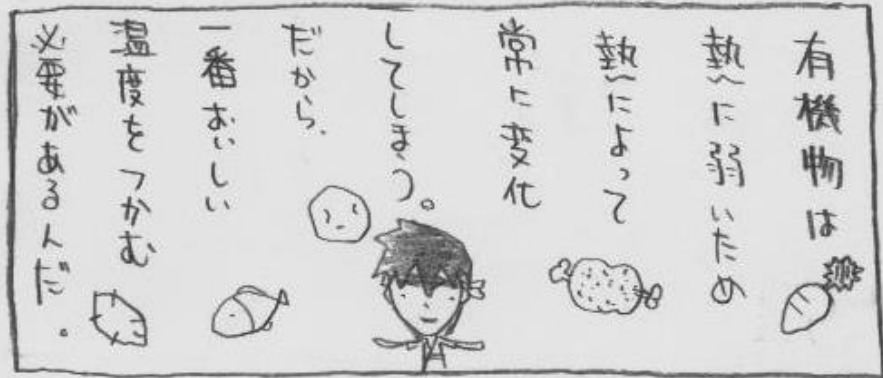 有機物は
熱に弱いため
熱によって
常に変化
してしまう。
だから、
一番おいしい
温度をつかむ
必要があるんだ。